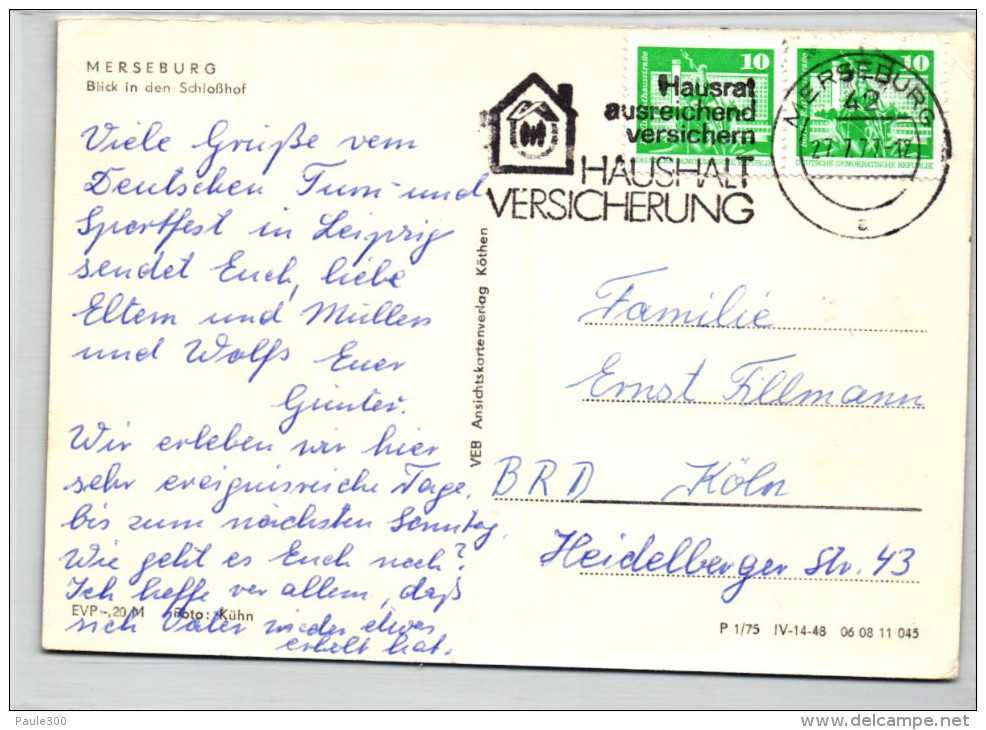 MERSEBURG
Blick in den Schloßhof
Viele Grüße vom
Deutschen Turn- und
Sportfest in Leipzig
sendet Euch, liebe
Eltern und Müllers
und Wolfs Euer
Günter.
Wir erleben wir hier
sehr ereignisreiche Tage.
bis zum nächsten Sonntag.
Wie geht es Euch noch?
Ich hoffe vor allem, daß
sich Vater wieder etwas
erholt hat.
EVP -,20 M Foto: Kühn
VEB Ansichtskartenverlag Köthen
Hausrat
ausreichend
versichern
HAUSHALT
VERSICHERUNG
10
DEUTSCHE DEMOKRATISCHE REPUBLIK
10
DEUTSCHE DEMOKRATISCHE REPUBLIK
MERSEBURG
42
27.7.77-12
a
Familie
Ernst Fillmann
BRD Köln
Heidelberger Str. 43
P 1/75 IV-14-48 06 08 11 045
Paule300